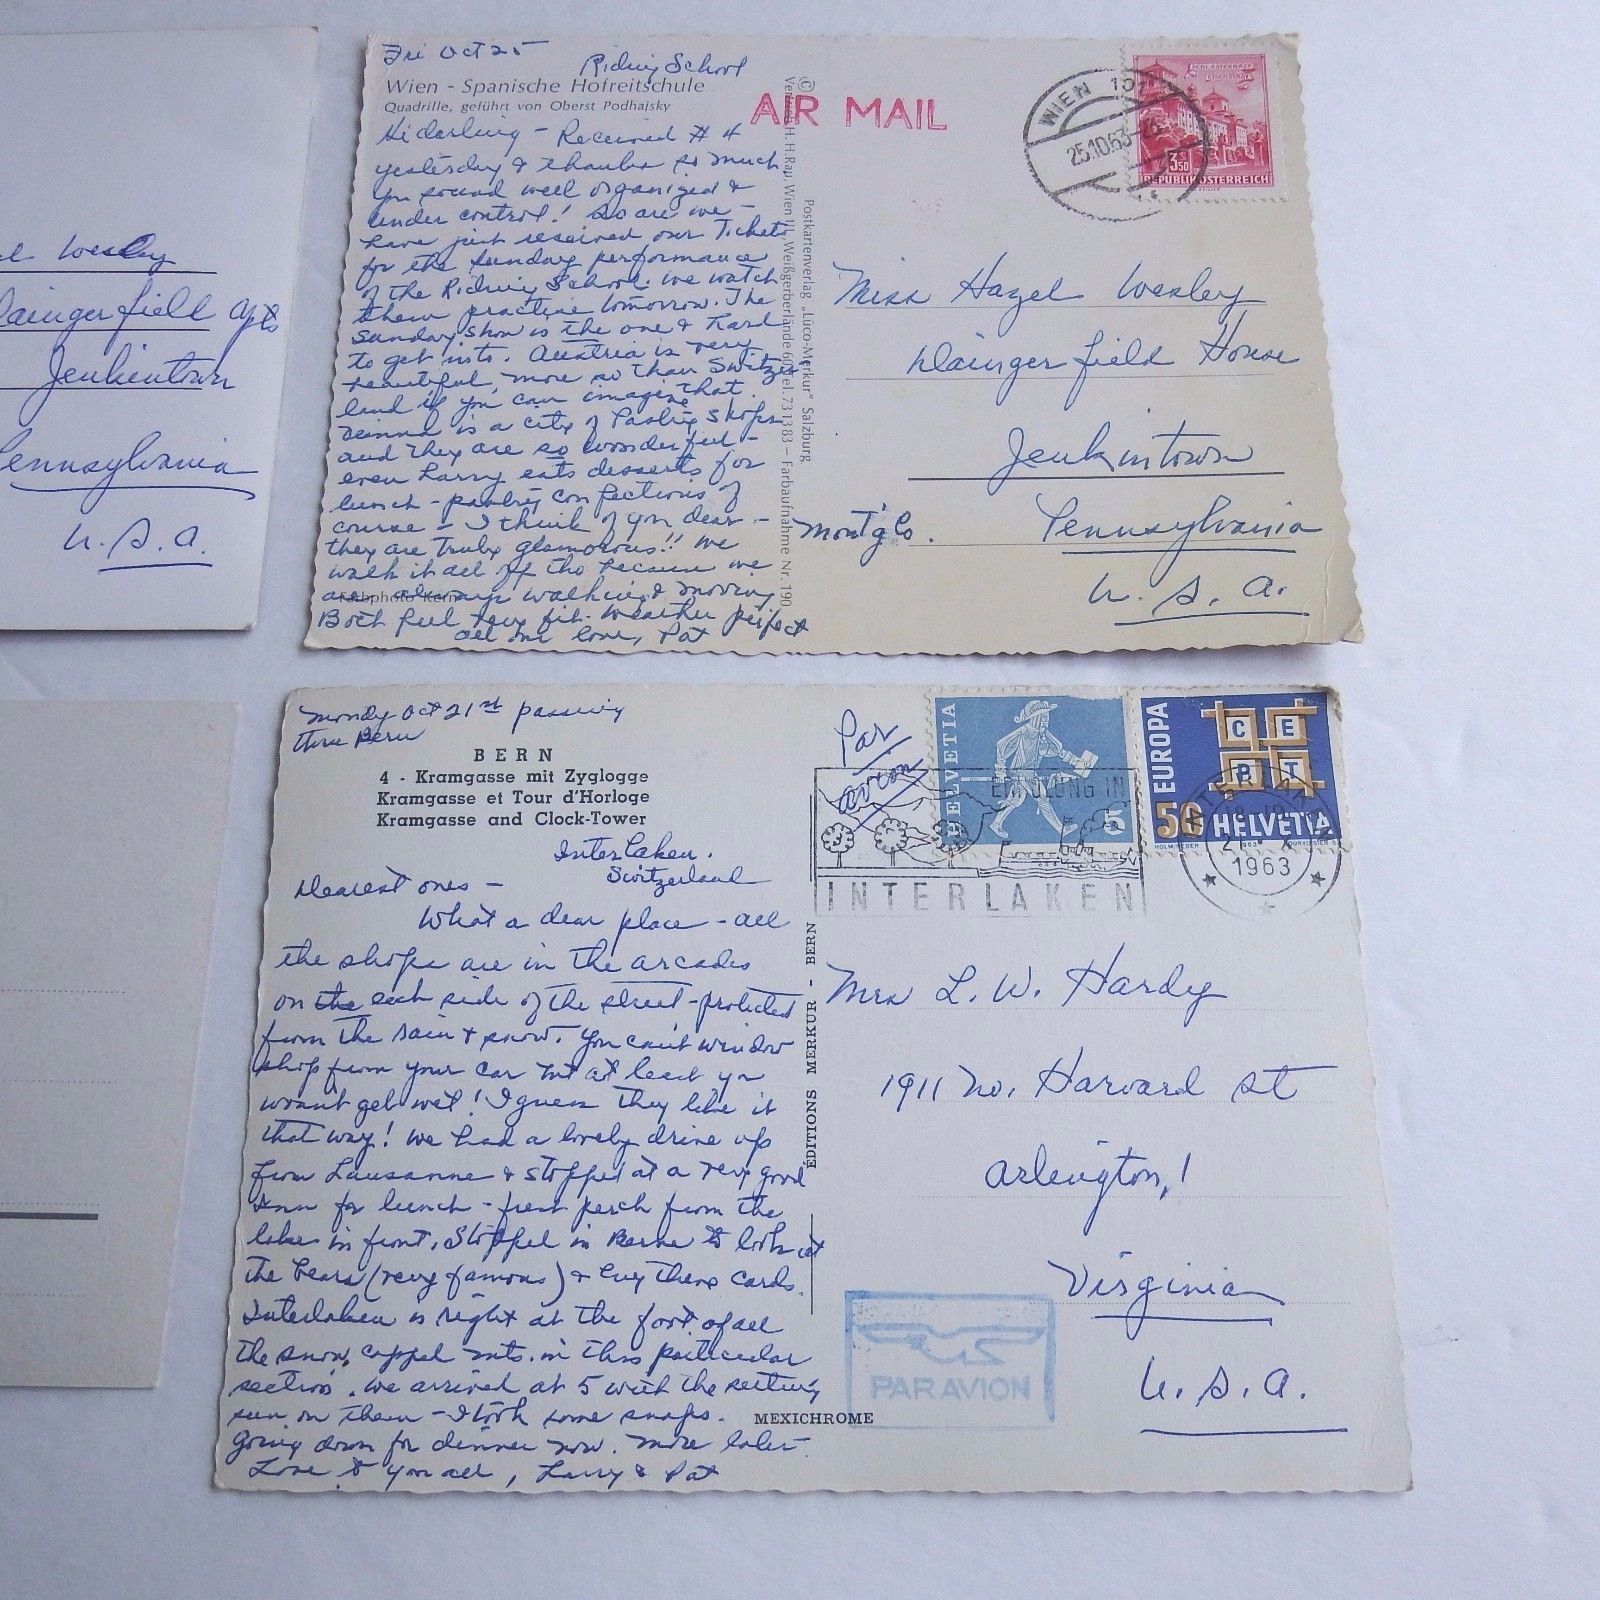 Wesley
Daingerfield Apts
Jenkintown
Pennsylvania
U. S. A.
Fri Oct 25
Riding School
Wien - Spanische Hofreitschule
Quadrille, geführt von Oberst Podhajsky
Hi darling - Received # 4
yesterday & thanks so much
You sound well organized &
under control! So are we -
have just received our Tickets
for the Sunday performance
of the Riding School. We watch
them practice tomorrow. The
Sunday show is the one & hard
to get into. Austria is very
beautiful, more so than Switzer
land if you can imagine that.
Vienna is a city of Pastry Shops
and they are so wonderful -
even Larry eats desserts for
lunch - pastry confections of
course - I think of you dear -
they are truly glamorous!! We
walk it all off tho because we
are always walking & moving
Farbphoto Kern
Both feel very fit. Weather perfect
All my love, Pat
©
Verlag H. H. Rau, Wien III, Weißgerberlände 60, Tel. 73 13 83 – Farbaufnahme Nr. 190
Postkartenverlag „Lüco-Merkur" Salzburg
AIR MAIL
WIEN 101
25.10.63
3.50
REPUBLIK ÖSTERREICH
Miss Hazel Wesley
Daingerfield House
Jenkintown
Mont'g Co. Pennsylvania
U. S. A.
Monday Oct 21st passing
thru Bern
BERN
4 - Kramgasse mit Zyglogge
Kramgasse et Tour d'Horloge
Kramgasse and Clock-Tower
Interlaken,
Switzerland
Dearest ones -
What a dear place - all
the shops are in the arcades
on the each side of the street - protected
from the rain & snow. You can't window
shop from your car but at least you
won't get wet! I guess they like it
that way! We had a lovely drive up
from Lausanne & stopped at a very good
Inn for lunch - fresh perch from the
lake in front. Stopped in Berne to look at
the bears (very famous) & buy these cards.
Interlaken is right at the foot of all
the snow capped mts. in this particular
section. We arrived at 5 with the setting
sun on them - I took some snaps.
Going down for dinner now. More later
Love to you all, Larry & Pat
ÉDITIONS MERKUR - BERN
MEXICHROME
Par
avion
HELVETIA
5
EUROPA
CEPT
50 HELVETIA
ERHOLUNG IN
INTERLAKEN
INTERLAKEN
1963
Mrs L. W. Hardy
1911 No. Harvard St
Arlington, !
Virginia
U. S. A.
PAR AVION